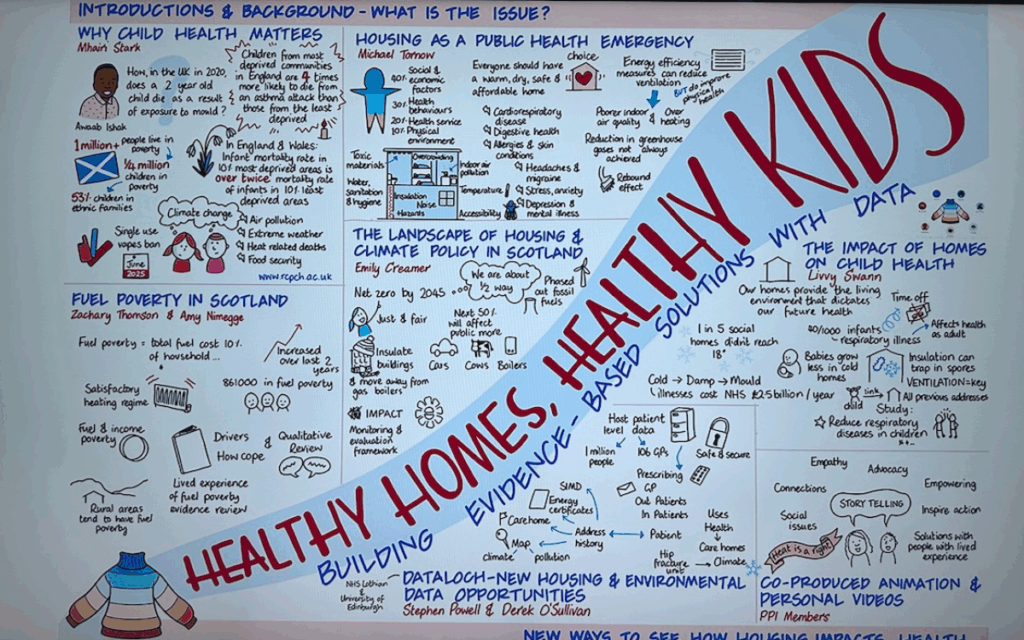 INTRODUCTIONS & BACKGROUND - WHAT IS THE ISSUE?
WHY CHILD HEALTH MATTERS
Mhairi Stark
How, in the UK in 2020,
does a 2 year old
child die as a result
of exposure to mould?
Awaab Ishak
Children from most
deprived communities
in England are 4 times
more likely to die from
an asthma attack than
those from the least
deprived
1 million+ people live in
poverty
1/4 million
children in
poverty
53% children in
ethnic families
In England & Wales:
Infant mortality rate in
10% most deprived areas is
over twice mortality rate
of infants in 10% least
deprived areas
Climate change
Air pollution
Extreme weather
Heat related deaths
Food security
Single use
vapes ban
June
2025
www.rcpch.ac.uk
HOUSING AS A PUBLIC HEALTH EMERGENCY
Michael Tornow
40% Social &
economic
factors
30% Health
behaviours
20% Health service
10% Physical
environment
Everyone should have
a warm, dry, safe &
affordable home
choice
Cardiorespiratory
disease
Digestive health
Allergies & skin
conditions
Headaches &
migraine
Stress, anxiety
Depression &
mental illness
Energy efficiency
measures can reduce
ventilation
BUT do improve
physical
health
Poorer indoor
air quality
& Over
heating
Reduction in greenhouse
gases not always
achieved
Rebound
effect
Toxic
materials
Overcrowding
Indoor air
pollution
Water,
sanitation
& hygiene
Insulation
Noise
Hazards
Temperature
Accessibility
THE LANDSCAPE OF HOUSING &
CLIMATE POLICY IN SCOTLAND
Emily Creamer
We are about
1/2 way
Net zero by 2045
Phased
out fossil
fuels
Just & fair
Next 50%
will affect
public more
Insulate
buildings
Cars
Cows
Boilers
& move away from
gas boilers
IMPACT
Monitoring &
evaluation
framework
FUEL POVERTY IN SCOTLAND
Zachary Thomson & Amy Nimegge
Fuel poverty = total fuel cost 10%
of household...
Increased
over last 2
years
Satisfactory
heating regime
861000 in fuel poverty
Fuel & income
poverty
Drivers
&
How cope
Qualitative
Review
Lived experience
of fuel poverty
evidence review
Rural areas
tend to have fuel
poverty
HEALTHY HOMES, HEALTHY KIDS
BUILDING EVIDENCE-BASED SOLUTIONS WITH DATA
THE IMPACT OF HOMES
ON CHILD HEALTH
Livvy Swann
Our homes provide the living
environment that dictates
our future health
Time off
1 in 5 social
homes didn't reach
18°
40/1000 infants
respiratory illness
Affects health
as adult
Babies grow
less in cold
homes
Insulation can
trap in spores
VENTILATION=key
Cold → Damp → Mould
illnesses cost NHS £2.5 billion / year
child
link
All previous addresses
Study:
Reduce respiratory
diseases in children
Host patient
level data
1 million
people
106 GPs
Safe & secure
Prescribing
GP
Out Patients
In Patients
SIMD
Energy
certificates
Carehome
Map
climate
pollution
Address
history
Patient
Uses
Health
Care homes
Hip
fracture
unit
Climate
NHS Lothian
&
University of
Edinburgh
DATALOCH-NEW HOUSING & ENVIRONMENTAL
DATA OPPORTUNITIES
Stephen Powell & Derek O'Sullivan
Empathy
Advocacy
Connections
Empowering
STORY TELLING
Inspire action
Social
issues
Heat is a right
Solutions with
people with lived
experience
CO-PRODUCED ANIMATION &
PERSONAL VIDEOS
PPI Members
NEW WAYS TO SEE HOW HOUSING IMPACTS HEALTH